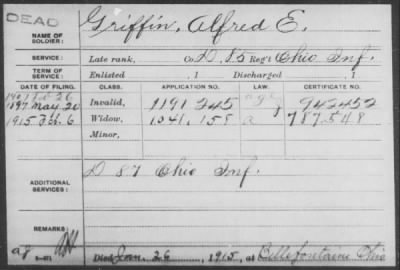 DEAD
NAME OF SOLDIER: Griffin, Alfred E.
SERVICE: Late rank, Co. D, 85 Reg't Ohio Inf.
TERM OF SERVICE: Enlisted , 1 Discharged , 1
DATE OF FILING. CLASS. APPLICATION NO. LAW. CERTIFICATE NO.
1897 May 20 Invalid, 1191245 942452
1915 Feb. 6 Widow, 1041,158 a 787548
Minor,
ADDITIONAL SERVICES: D 87 Ohio Inf.
REMARKS:
Died Jan. 26, 1915, at Bellefontaine Ohio